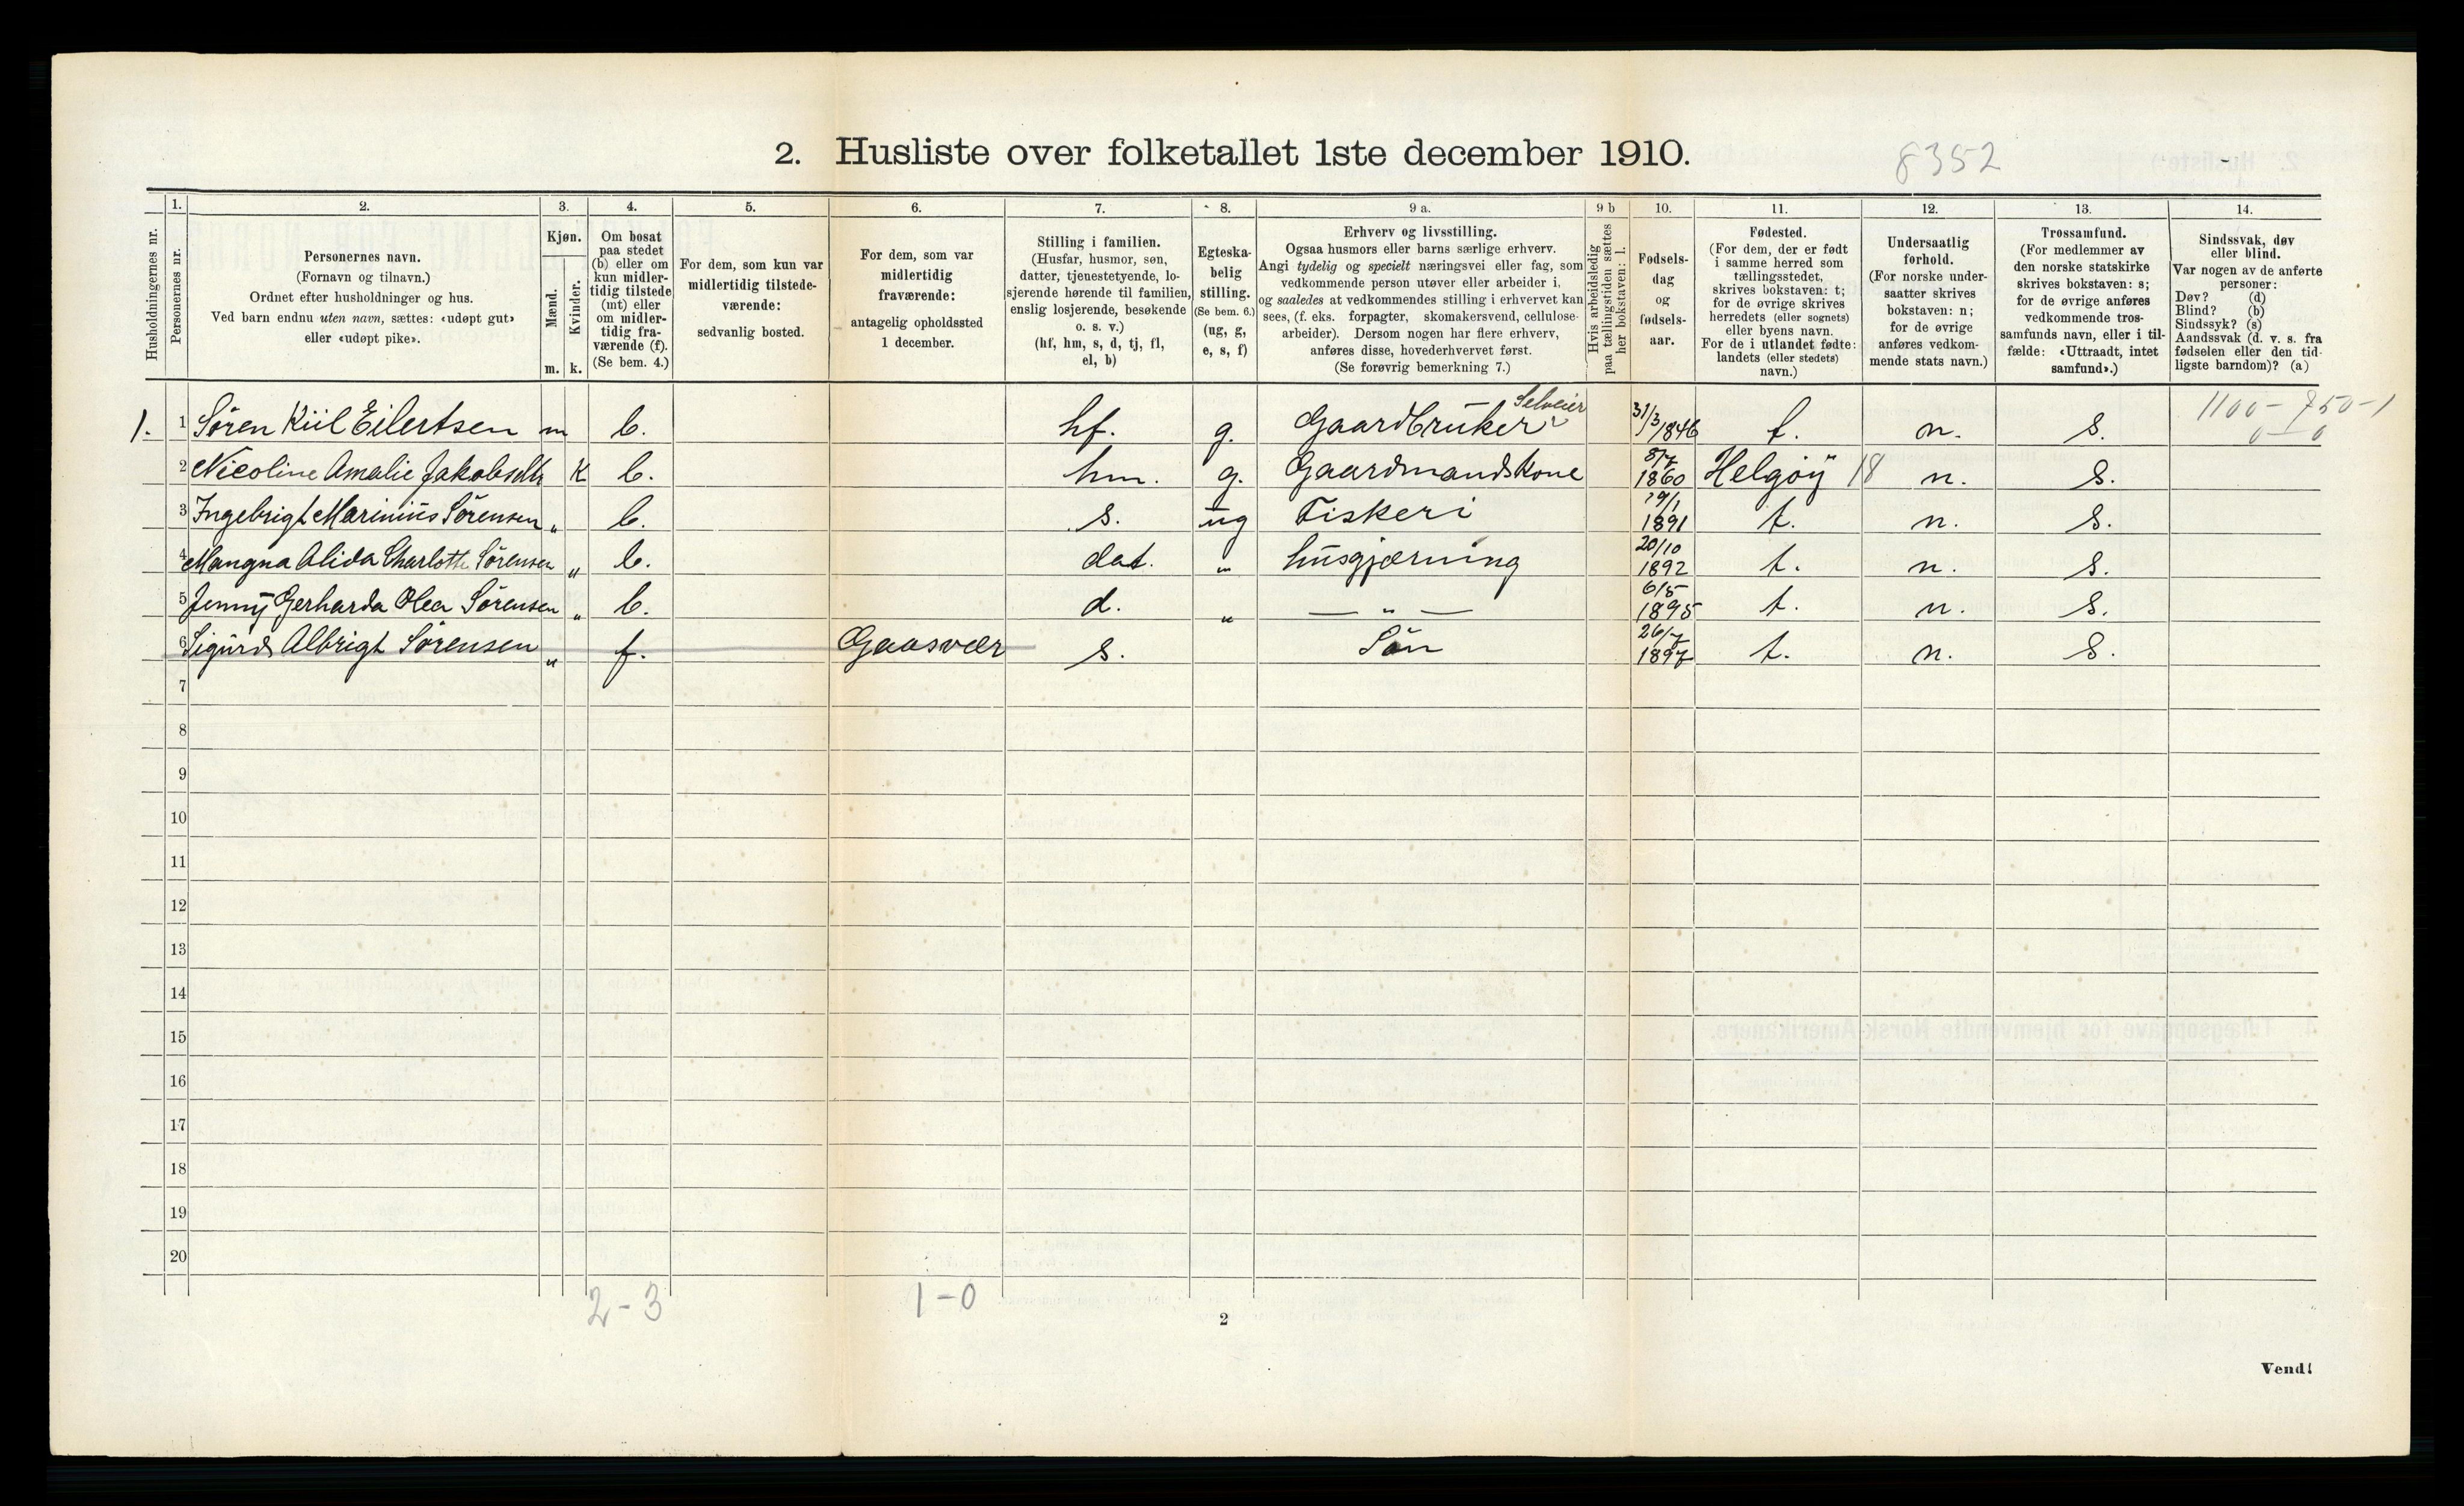 2. Husliste over folketallet 1ste december 1910.
8352
1. 2. 3. 4. 5. 6. 7. 8. 9 a. 9 b 10. 11. 12. 13. 14.
Husholdningernes nr.
Personernes nr.
Personernes navn.
(Fornavn og tilnavn.)
Ordnet efter husholdninger og hus.
Ved barn endnu uten navn, sættes: «udøpt gut»
eller «udøpt pike».
Kjøn.
Mænd.
Kvinder.
m. k.
Om bosat
paa stedet
(b) eller om
kun midler-
tidig tilstede
(mt) eller
om midler-
tidig fra-
værende (f).
(Se bem. 4.)
For dem, som kun var
midlertidig tilstede-
værende:
sedvanlig bosted.
For dem, som var
midlertidig
fraværende:
antagelig opholdssted
1 december.
Stilling i familien.
(Husfar, husmor, søn,
datter, tjenestetyende, lo-
sjerende hørende til familien,
enslig losjerende, besøkende
o. s. v.)
(hf, hm, s, d, tj, fl,
el, b)
Egteska-
belig
stilling.
(Se bem. 6.)
(ug, g,
e, s, f)
Erhverv og livsstilling.
Ogsaa husmors eller barns særlige erhverv.
Angi tydelig og specielt næringsvei eller fag, som
vedkommende person utøver eller arbeider i,
og saaledes at vedkommendes stilling i erhvervet kan
sees, (f. eks. forpagter, skomakersvend, cellulose-
arbeider). Dersom nogen har flere erhverv,
anføres disse, hovederhvervet først.
(Se forøvrig bemerkning 7.)
Hvis arbeidsledig
paa tællingstiden sættes
her bokstaven: l.
Fødsels-
dag
og
fødsels-
aar.
Fødested.
(For dem, der er født
i samme herred som
tællingsstedet,
skrives bokstaven: t;
for de øvrige skrives
herredets (eller sognets)
eller byens navn.
For de i utlandet fødte:
landets (eller stedets)
navn.)
Undersaatlig
forhold.
(For norske under-
saatter skrives
bokstaven: n;
for de øvrige
anføres vedkom-
mende stats navn.)
Trossamfund.
(For medlemmer av
den norske statskirke
skrives bokstaven: s;
for de øvrige anføres
vedkommende tros-
samfunds navn, eller i til-
fælde: «Uttraadt, intet
samfund».)
Sindssvak, døv
eller blind.
Var nogen av de anførte
personer:
Døv? (d)
Blind? (b)
Sindssyk? (s)
Aandssvak (d. v. s. fra
fødselen eller den tid-
ligste barndom)? (a)
1. 1 Sören Kiil Eilertsen m b. hf. g. Gaardbruker Selveier 31/3 1846 t. n. s. 1100 - 750 - 1
0 - 0
2 Nicoline Amalie Jakobsdtr K b. hm. g. Gaardmandskone 8/7 1860 Helgöy 18 n. s.
3 Ingebrigt Marinius Sörensen " b. s. ug Fiskeri 19/1 1891 t. n. s.
4 Mangna Alida Charlotte Sörensen " b. dat. " husgjærning 20/10 1892 t. n. s.
5 Jenny Gerharda Olea Sörensen " b. d. " — " — 6/5 1895 t. n. s.
6 Sigurd Albrigt Sörensen " f. Gaasvær s. Sön 26/7 1897 t. n. s.
7
8
9
10
11
12
13
14
15
16
17
18
19
20
2 - 3 1 - 0
2
Vend!